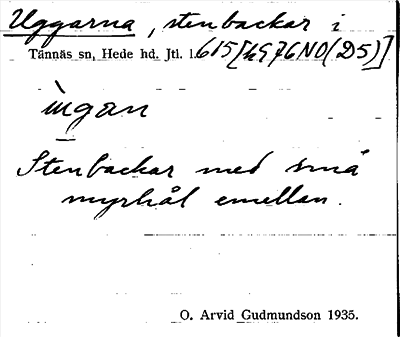 Uggarna, stenbackar i
Tännäs sn, Hede hd. Jtl. l. 615 [hG76NO(D5)]
ìngan
Stenbackar med små
myrhål emellan.
O. Arvid Gudmundson 1935.